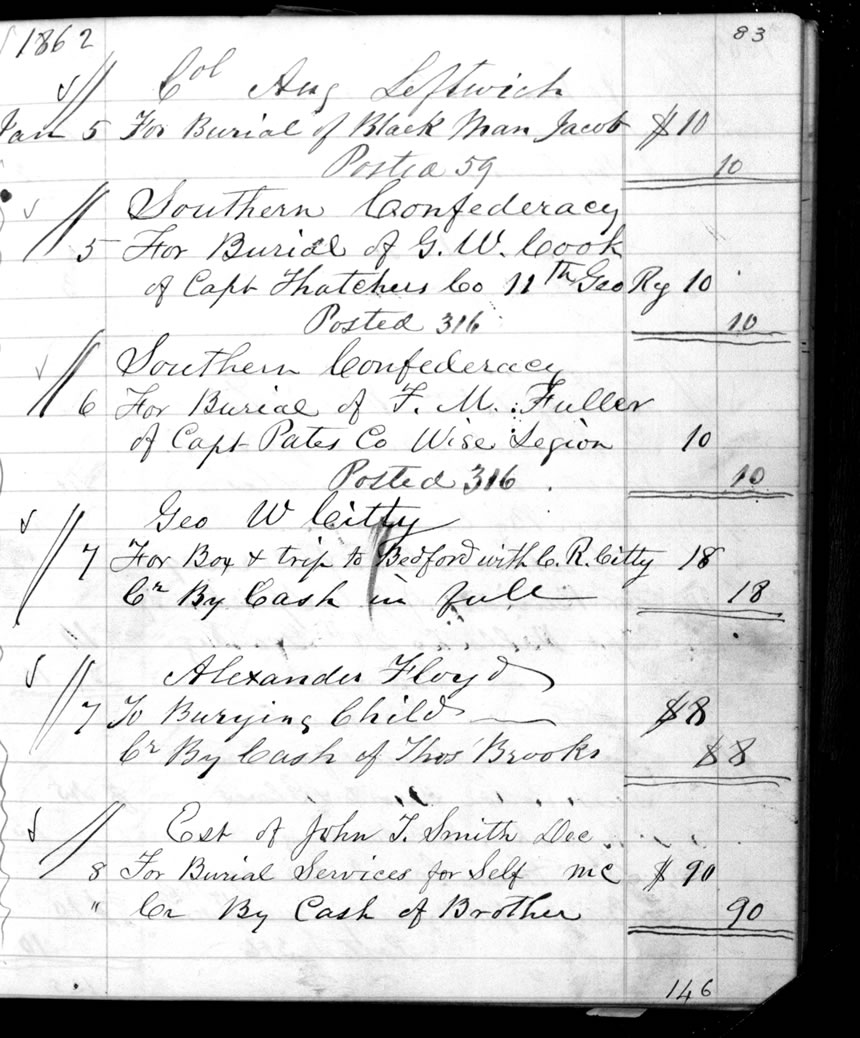 1862 83
Col Aug Leftwich
Jan 5 For Burial of Black Man Jacob $10
Posted 59 10
Southern Confederacy
5 For Burial of G. W. Cook
of Capt Thatchers Co 11th Geo Rg 10
Posted 316 10
Southern Confederacy
6 For Burial of F. M. Fuller
of Capt Pates Co Wise Legion 10
Posted 316 10
Geo W Citty
7 For Box & trip to Bedford with C. R. Citty 18
Cr By Cash in full 18
Alexander Floyd
7 To Burying Child $8
Cr By Cash of Thos Brooks $8
Est of John T. Smith Dec
8 For Burial Services for Self $90
" Cr By Cash of Brother 90
146